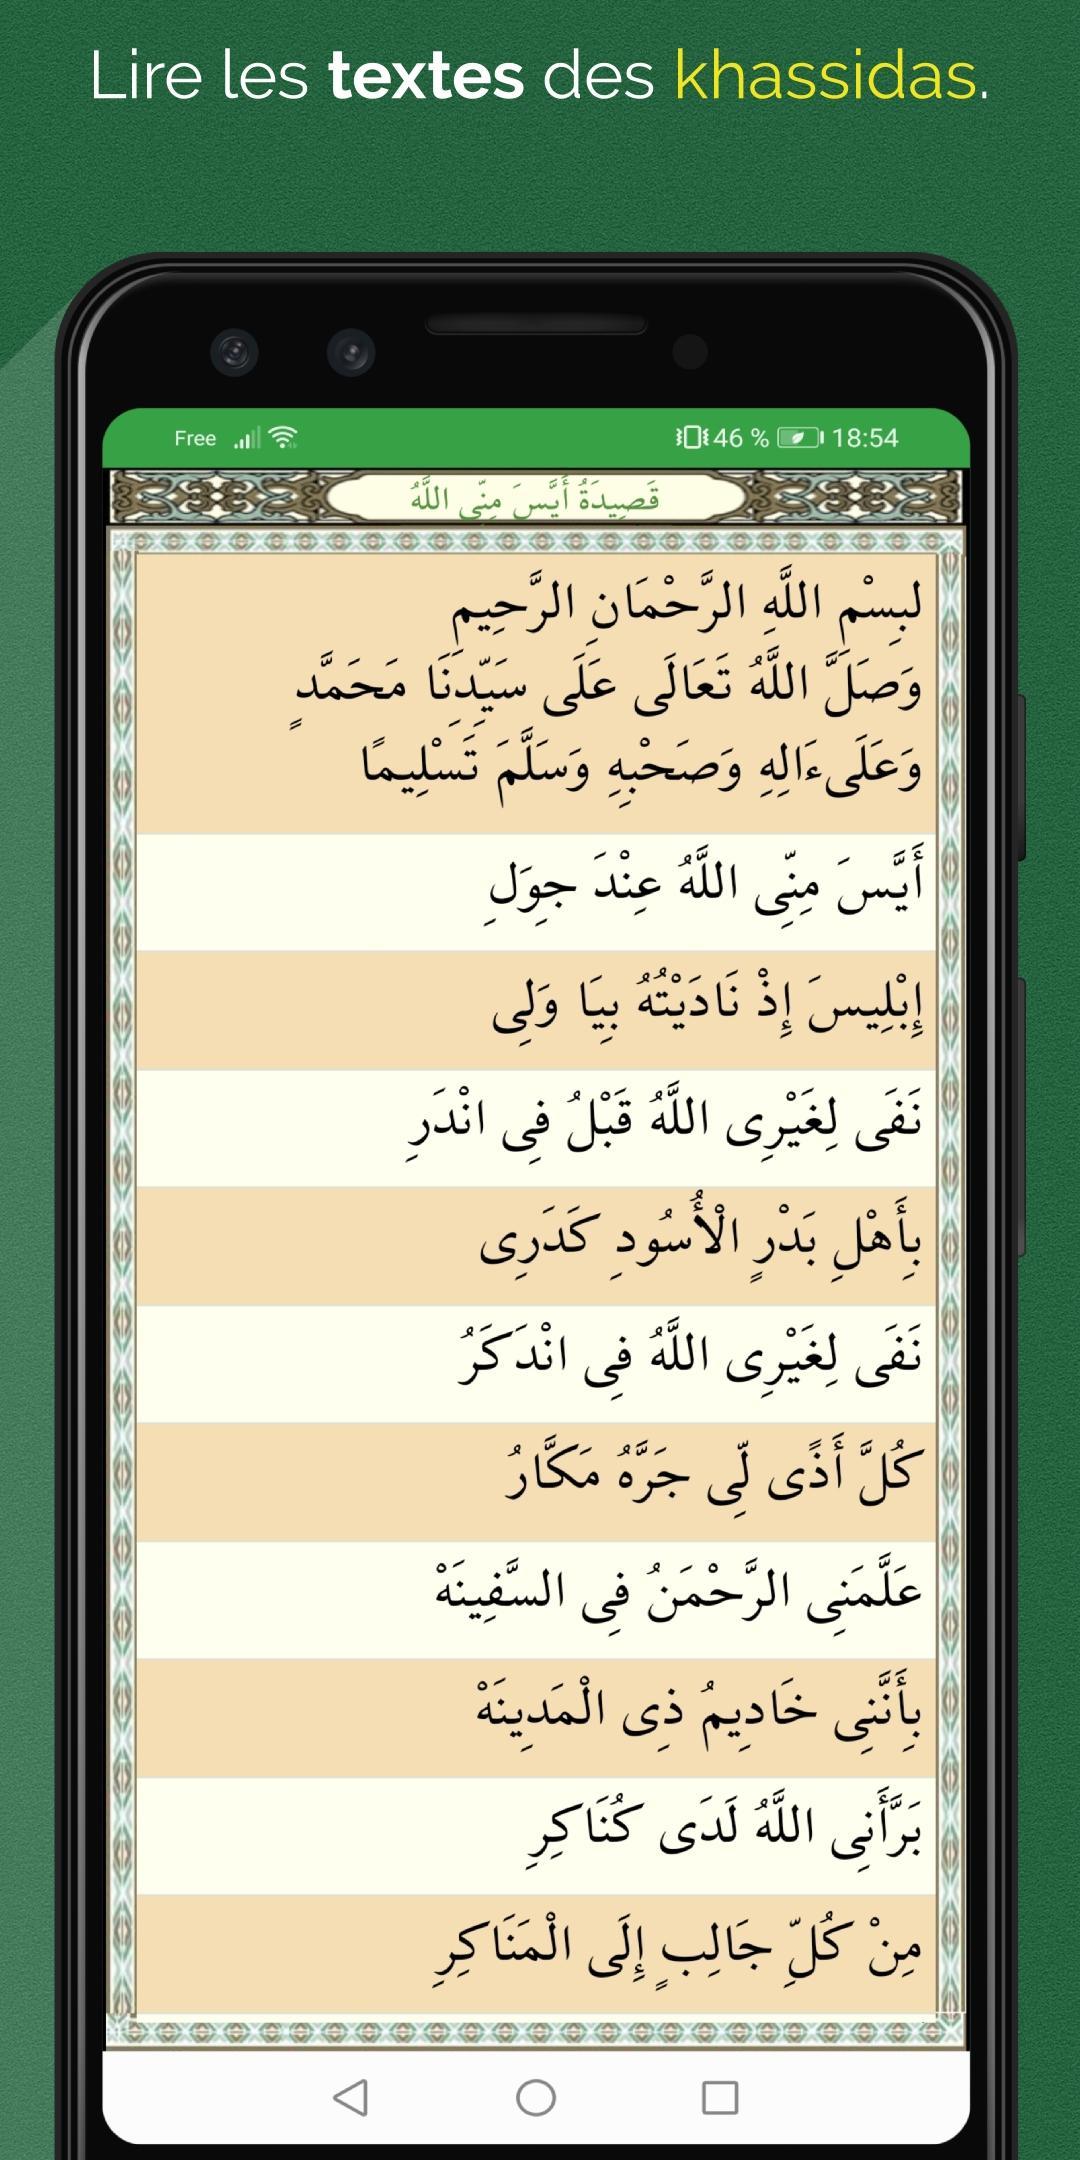 Lire les textes des khassidas.
Free 46 % 18:54
قَصِيدَةُ أَيَّسَ مِنِّى اللَّهُ
لبِسْمِ اللَّهِ الرَّحْمَانِ الرَّحِيمِ
وَصَلَّ اللَّهُ تَعَالَى عَلَى سَيِّدِنَا مَحَمَّدٍ
وَعَلَىءَالِهِ وَصَحْبِهِ وَسَلَّمَ تَسْلِيمًا
أَيَّسَ مِنِّى اللَّهُ عِنْدَ جِوَلِ
إِبْلِيسَ إِذْ نَادَيْتُهُ بِيَا وَلِى
نَفَى لِغَيْرِى اللَّهُ قَبْلُ فِى انْدَرِ
بِأَهْلِ بَدْرٍ الْأُسُودِ كَدَرِى
نَفَى لِغَيْرِى اللَّهُ فِى انْدَكَرُ
كُلَّ أَذًى لِّى جَرَّهُ مَكَّارُ
عَلَّمَنِى الرَّحْمَنُ فِى السَّفِينَهْ
بِأَنَّنِى خَادِيمُ ذِى الْمَدِينَهْ
بَرَّأَنِى اللَّهُ لَدَى كُنَاكِرِ
مِنْ كُلِّ جَالِبٍ إِلَى الْمَنَاكِرِ